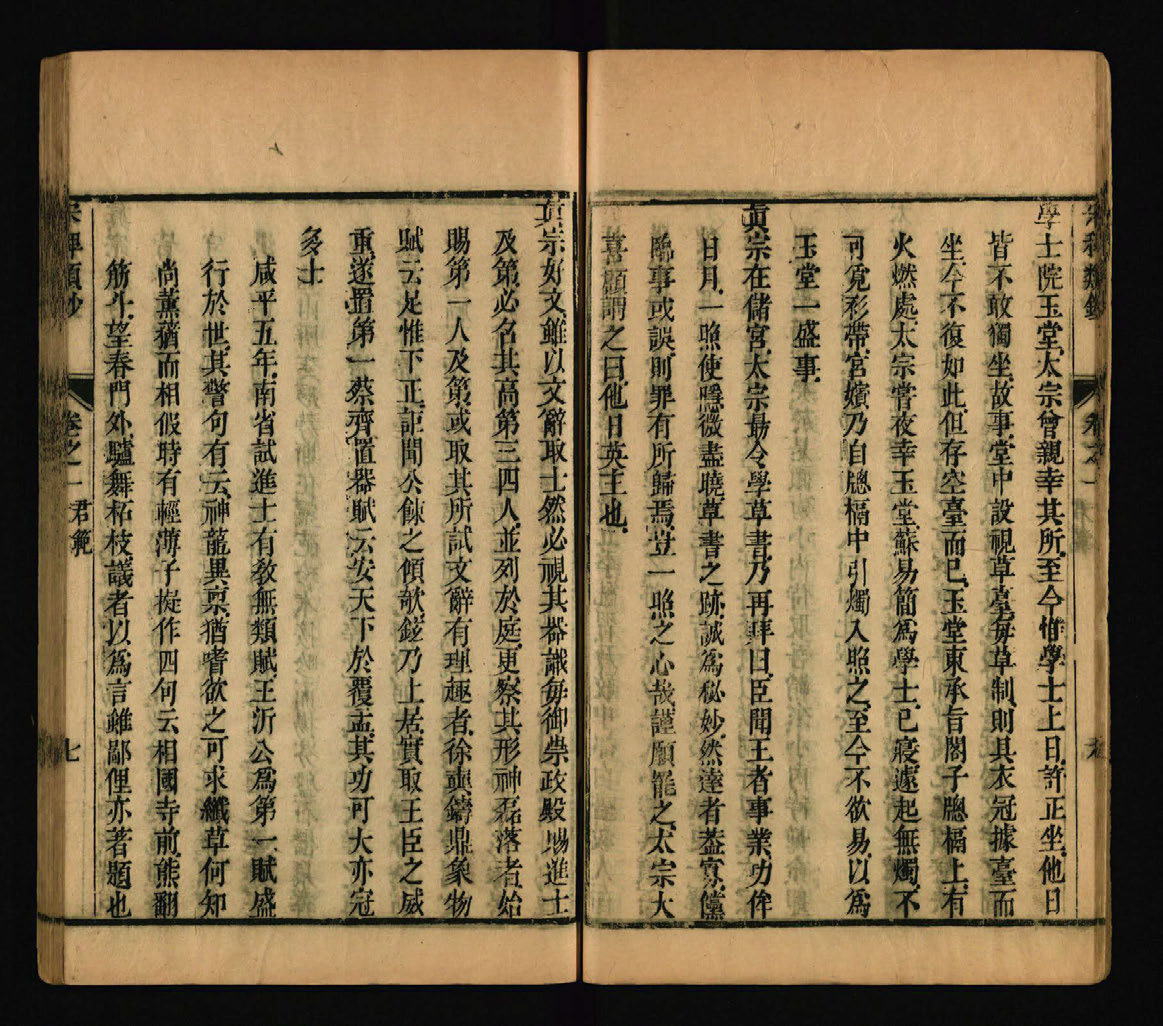 宋稗類鈔
卷之一
學士院玉堂太宗曾親幸其所至今惟學士上日許正坐他日
皆不敢獨坐故事堂中設視草臺每草制則具衣冠據臺而
坐今不復如此但存空臺而已玉堂東承旨閣子牕槅上有
火燃處太宗嘗夜幸玉堂蘇易簡爲學士已寢遽起無燭不
可覓衫帶宮嬪乃自牕槅中引燭入照之至今不欲易以爲
玉堂一盛事
眞宗在儲宮太宗最令學草書乃再拜曰臣聞王者事業功侔
日月一照使隱微盡曉草書之跡誠爲秘妙然達者葢寡儻
臨事或誤則罪有所歸焉豈一照之心哉謹願罷之太宗大
喜顧謂之曰他日英主也
眞宗好文雖以文辭取士然必視其器識每御崇政殿賜進士
及第必名其高第三四人並列於庭更察其形神磊落者始
賜第一人及第或取其所試文辭有理趣者徐奭鑄鼎象物
賦云足惟下正詎聞公餗之傾欹鉉乃上居實取王臣之威
重遂置第一蔡齊置器賦云安天下於覆盂其功可大亦冠
多士
咸平五年南省試進士有敎無類賦王沂公爲第一賦盛
行於世其警句有云神龍異禀猶嗜欲之可求纖草何知
尚薰蕕而相假時有輕薄子擬作四句云相國寺前熊翻
筋斗望春門外驢舞柘枝議者以爲言雖鄙俚亦著題也
宋稗類鈔
卷之一
君範
七